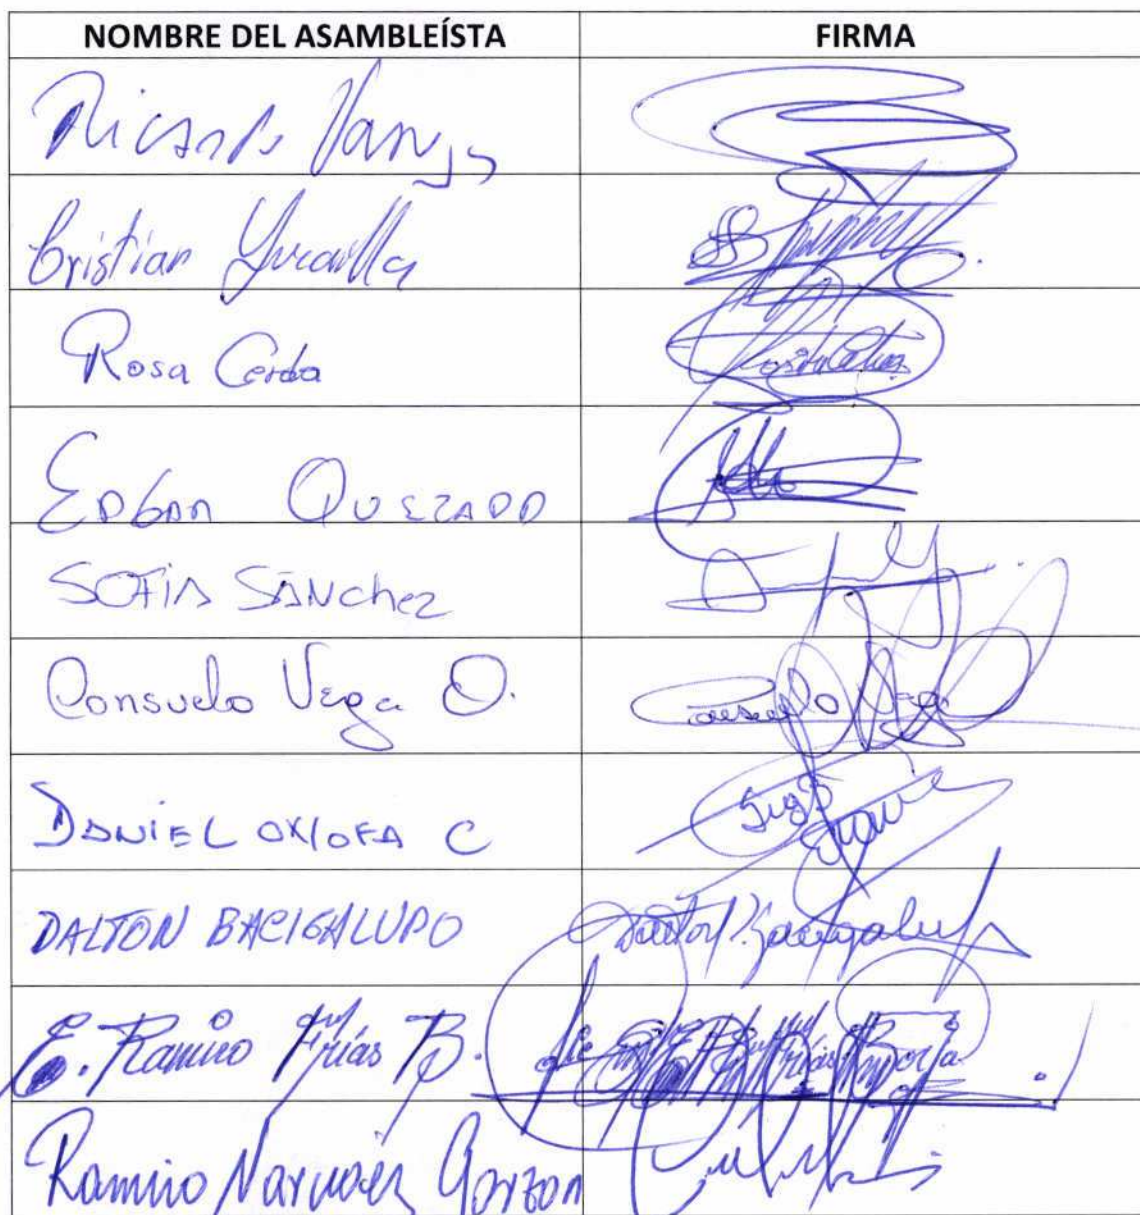 NOMBRE DEL ASAMBLEÍSTA FIRMA
Ricardo Vanegas
Cristian Yucailla
Rosa Cerda Rosita Cerda
EDGAR QUEZADA
SOFIA SÁNchez
Consuelo Vega O. Consuelo Vega
DANIEL C
DALTON BACIGALUPO Dalton Bacigalupo
E. Ramiro Frías B. Frías Borja
Ramiro Narváez Garzon